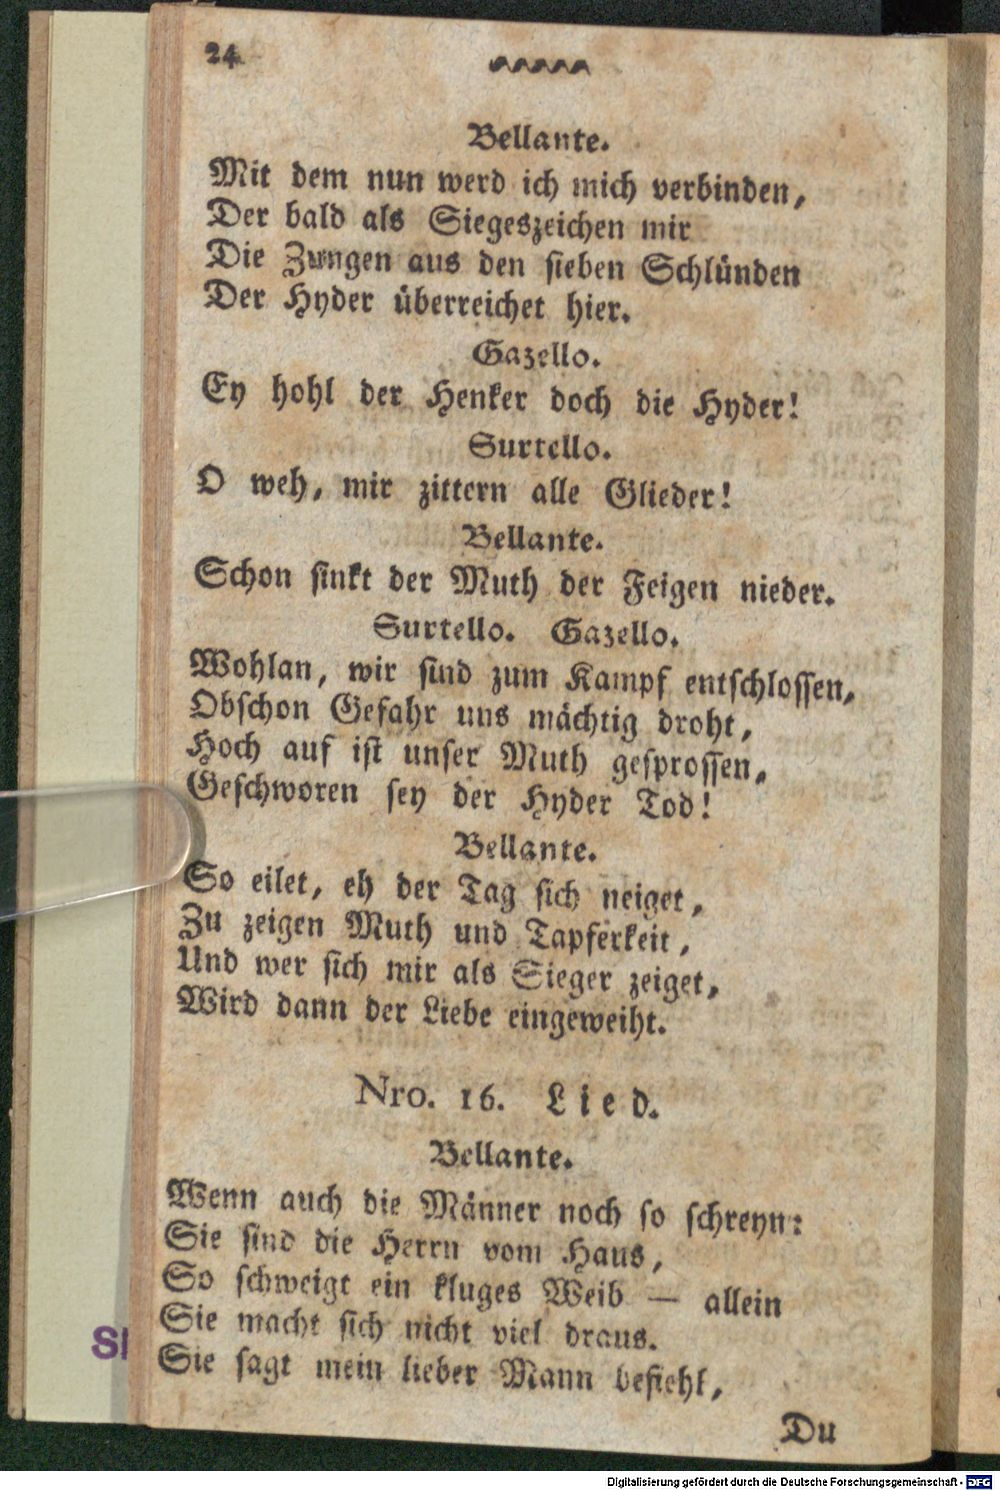 24
Bellante.
Mit dem nun werd ich mich verbinden,
Der bald als Siegeszeichen mir
Die Zungen aus den sieben Schlünden
Der Hyder überreichet hier.
Gazello.
Ey hohl der Henker doch die Hyder!
Surtello.
O weh, mir zittern alle Glieder!
Bellante.
Schon sinkt der Muth der Feigen nieder.
Surtello. Gazello.
Wohlan, wir sind zum Kampf entschlossen,
Obschon Gefahr uns mächtig droht,
Hoch auf ist unser Muth gesprossen,
Geschworen sey der Hyder Tod!
Bellante.
So eilet, eh der Tag sich neiget,
Zu zeigen Muth und Tapferkeit,
Und wer sich mir als Sieger zeiget,
Wird dann der Liebe eingeweiht.
Nro. 16. Lied.
Bellante.
Wenn auch die Männer noch so schreyn:
Sie sind die Herrn vom Haus,
So schweigt ein kluges Weib — allein
Sie macht sich nicht viel draus.
Sie sagt mein lieber Mann befiehl,
Du
Digitalisierung gefördert durch die Deutsche Forschungsgemeinschaft - DFG